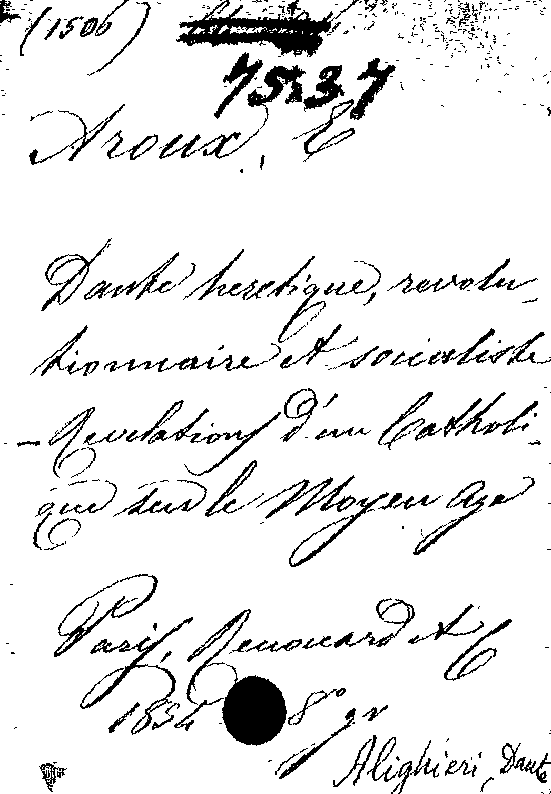 (1506)
75.3.7
Aroux, E
Dante heretique, revolu-
tionnaire et socialiste
- Revelations d'un Catholi-
que sur le Moyen Age
Paris, Renouard et C
1854 8° gr
Alighieri, Dante